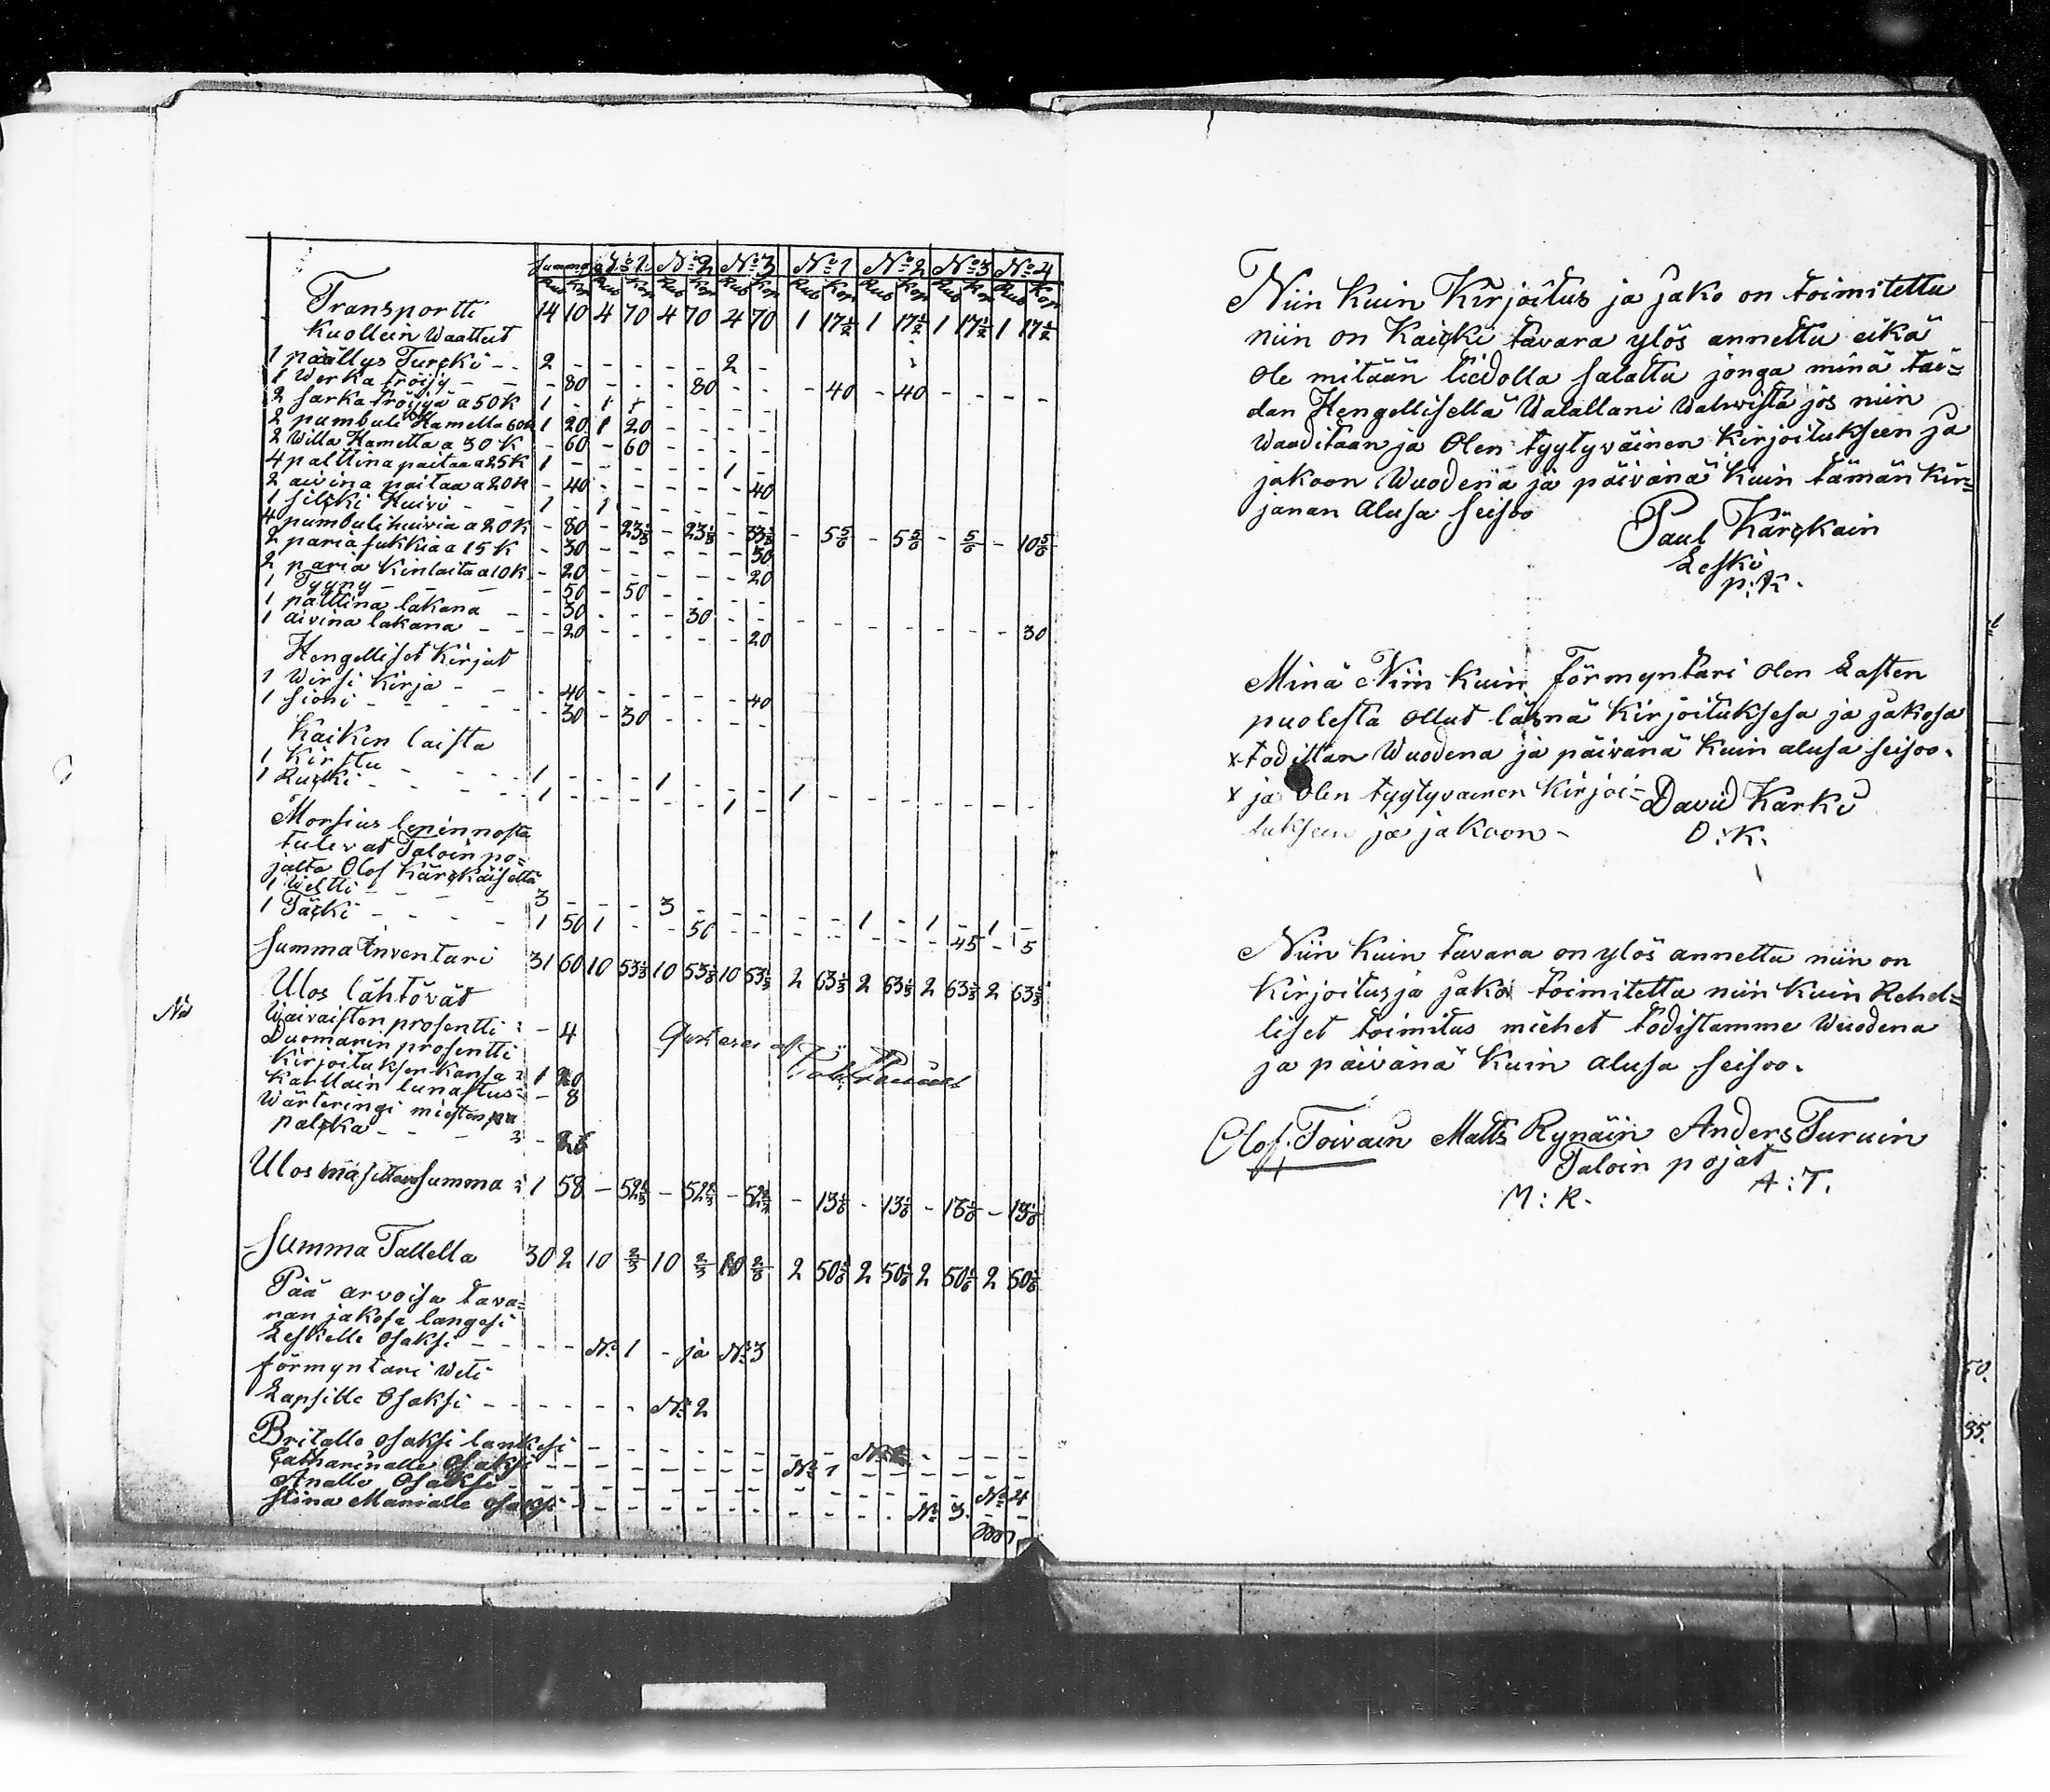 Summa No 1 No 2 No 3 No 1 No 2 No 3 No 4
Rub Kop Rub Kop Rub Kop Rub Kop Rub Kop Rub Kop Rub Kop Rub Kop
Transportti 14 10 4 70 4 70 4 70 1 17½ 1 17½ 1 17½ 1 17½
Kuollein Waattet
1 päällys Turcki - - 2 - - - - - 2 -
1 Werka tröijy - - - 80 - - - 80 - - - 40 - 40 - - - -
2 sarka tröijyä a 50 K 1 - 1 - - - - -
2 pumbuli Hametta 60 K 1 20 1 20 - - - -
2 Willa Hametta a 30 K - 60 - 60 - - - -
4 palttina paitaa a 25 K 1 - - - - - 1 -
2 aivina paitaa a 20 K - 40 - - - - - 40
1 silcki Huivi - - 1 - 1 - - - - -
4 pumbulihuivia a 20 K - 80 - 23⅓ - 23⅓ - 33⅓ - 5⅚ - 5⅚ - ⅚ - 10⅚
2 paria sukkia a 15 K - 30 - - - - - 30
2 paria Kintaita a 10 K - 20 - - - - - 20
1 Tyyny - - - 50 - 50 - - - -
1 palttina lakana - - 30 - - - 30 - - - - - - - - - 30
1 aivina lakana - - - 20 - - - - - 20
Hengelliset Kirjat
1 Wirsi Kirja - - - 40 - - - - - 40
1 Sioni - - - - - 30 - 30 - - - -
Kaiken laista
1 Kirstu - - - - 1 - - - 1 - - - 1 - - - - - - -
1 Rucki - - - - 1 - - - - - 1 -
Morsius lepinnosta
tulevat Taloin po=
jalta Olof Kärckäiseltä
1 Weltti - - - - - 3 - - - 3 - - - - - 1 - 1 - 1 -
1 Täcki - - - - 1 50 1 - - 50 - - - - - - - 45 - 5
Summa Inventari 31 60 10 53⅓ 10 53⅓ 10 53⅓ 2 63⅓ 2 63⅓ 2 63⅓ 2 63⅓
Ulos lähtövät
Waivaisten prosentti : - 4
Duomarin prosentti
Kirjoituksen Kansa : 1 20
Karttain lunastus : - 8
Wärteringi miesten
palcka - - - - 26
Ulos Summa : 1 58 - 52⅔ - 52⅔ - 52⅔ - 13⅙ - 13⅙ - 13⅙ - 13⅙
Summa Tallella 30 2 10 ⅔ 10 ⅔ 10 ⅔ 2 50⅙ 2 50⅙ 2 50⅙ 2 50⅙
Pää arvoisa tava=
ran jakosa langesi
Leskelle osaksi - - - - No 1 - ja No 3
förmyntari Weti
Lapsille Osaksi - - - - - - No 2
Britalle osaksi lankesi - - - - - - - - No 2 - - - -
Catharinalle Osaksi - - - - - - - No 1 - - - - - -
Analle Osaksi - - - - - - - - - - - - No 4
Stina Marialle osaksi - - - - - - - - - - No 3. - -
Niin Kuin Kirjoitus ja jako on toimitettu
niin on Kaicki tavara ylös annettu eikä
Ole mitään tiedolla salattu jonga minä tai=
dan Hengellisellä Walallani Wahvista jos niin
Waaditaan ja Olen tyytyväinen Kirjoitukseen ja
jakoon Wuodena ja päivänä Kuin tämän Kir=
janan Alusa seisoo
Paul Kärckain
Leski
P: K.
Minä Niin Kuin Förmyntari Olen Lasten
puolesta Ollut läsnä Kirjoituksesa ja jakosa
x todistan Wuodena ja päivänä Kuin alusa seisoo.
x ja Olen tyytyvainen Kirjoi=
tukseen ja jakoon -
David Karki
D: K.
Niin Kuin tavara on ylös annettu niin on
Kirjoitus ja jako toimitettu niin Kuin Rehel=
liset toimitus miehet todistamme Wuodena
ja päivänä Kuin alusa seisoo.
Olof Toivain Matts Rynäin Anders Turuin
Taloin pojat
M: R. A: T.
50.
35.